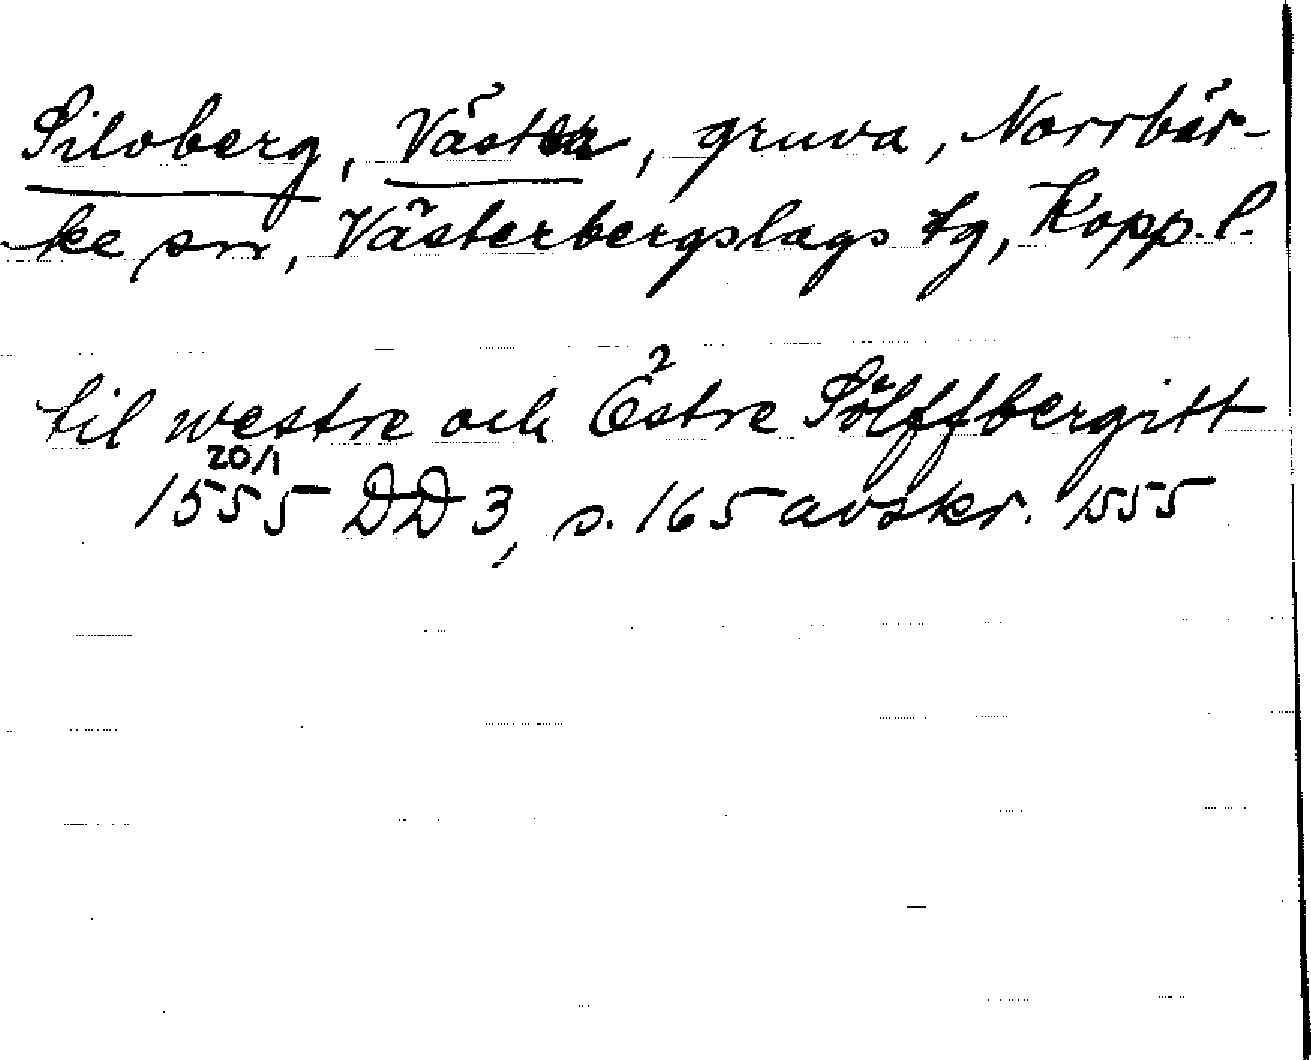 Silvberg, Väster, gruva, Norrbär-
ke sn, Västerbergslags tg, Kopp. l.
til westre och Östre Sölffbergitt
20/1
1555 DD 3, s. 165 avskr. 1555